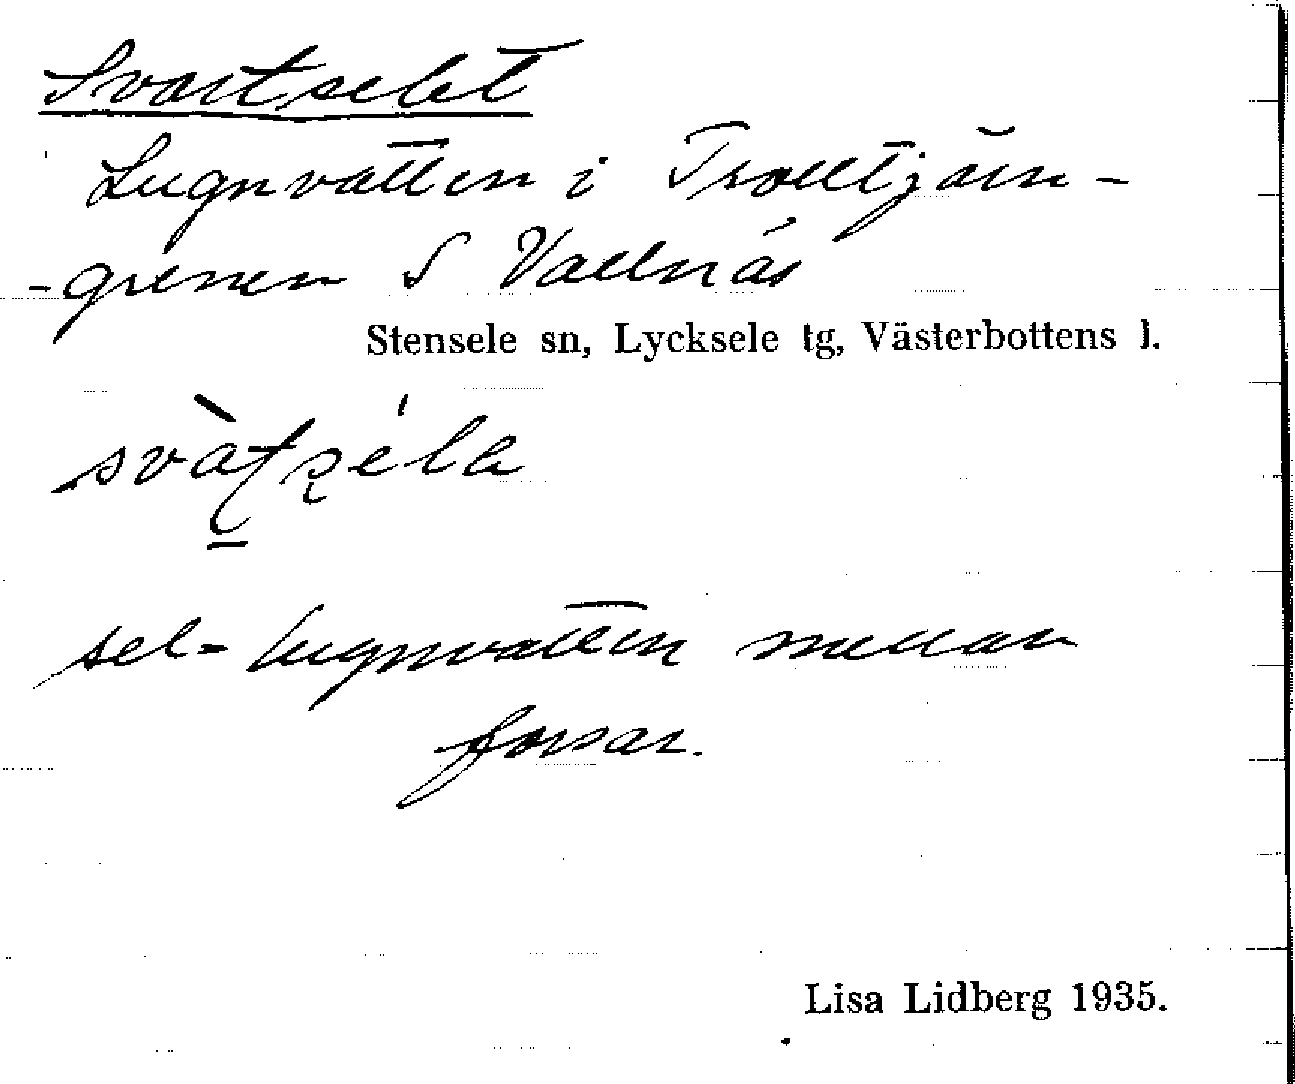 Svartselet
Lugnvatten i Trolltjärn-
-grenen S Vallnäs
Stensele sn, Lycksele tg, Västerbottens l.
sel = lugnvatten mellan
forsar.
Lisa Lidberg 1935.